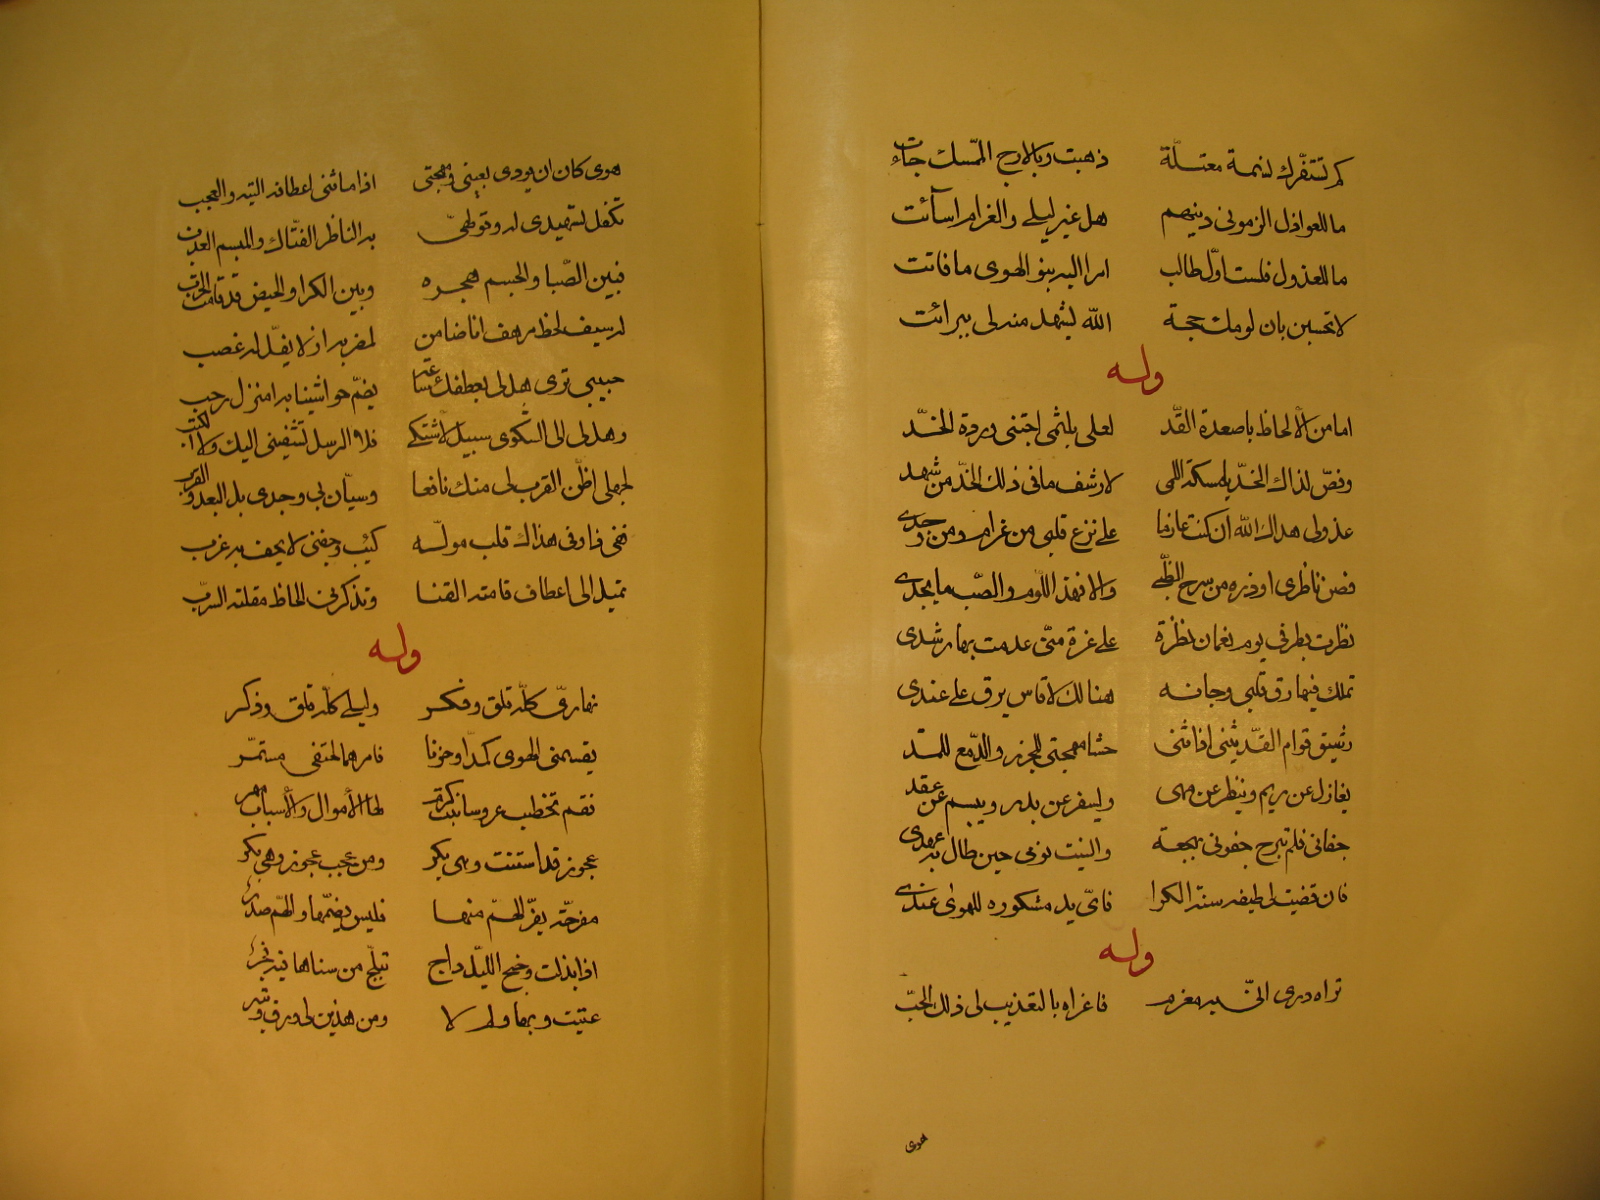 كم تستفزك لنسمة معتلّة ذهبت وبالارج الممسك جاءت
ما للعواذل الزمونى دينهم هل غير ليلى والغرام اسآئت
ما للعذول فلست اوّل طالب امرا اليه بنو الهوى ما فاتت
لا تحسبن بان لومك حجة اللّه يشهد منه لى ببرائت
وله
اما من الألحاظ يا صعدة القدّ لعلى بلثمى اجتنى وردة الخدّ
وفصّ لذاك الخدّ يا مسكة اللمى لارشف ما فى ذلك الخدّ من شهد
عذولى هداك اللّه ان كنت عازما على نزع قلبى من غرام ومن وجدى
فصن ناظرى او ذره من سرح الظبى والا فهذ اللّوم والصّب ما يجدى
نظرت بطرفى يوم نعمان نظرة على غرة منّى عدمت بها رشدى
تملك فيها رق قلبى وجانه هنالك لا قاس يرق على عندى
رشيق قوام القدّ يثنى اذا نثنى حشا مهجتى للجزر والدّمع للمدّ
يغازل عن ريم وينظر عن مهى ويسفر عن بدر ويبسم عن عقد
جفانى فلم تبرح جفونى بهجعة وانسيت نومى حين طال به عهدى
فان قضيت لى طيفه سنة الكرا فاىّ يد مشكوره للهوى عندى
وله
تراه درى انّى به مغرم فاغراه بالتعذيب لى ذلك الحبّ
هوى
هوى كان ان يودى بعينى ومهجتى اذا ما نثنى اعطافه التيه والعجب
تكفل تسهيدى له وتولهى به الناظر الفتّاك والمبسم العذب
فبين الصّبا والجسم هجره وبين الكرا والجفن قد قامت الحرب
له سيف لحظ مرهف انا ضامن لمضربه ان لا يفلّ له غصب
حبيبى ترى هل لى بعطفك ساعة يضمّ حواشينا بها منزل رحب
وهل لى الى الشّكوى سبيل لأشتكى فلا الرسل تشفينى اليك ولا الكتب
لجهلى اظنّ القرب لى منك نافعا وسيّان بى وجدى بل البعد والقرب
فى هذاك قلب مولّه كئيب وجفنى لا يجف به غرب
تميل الى اعطاف قامته القنا وتذكرنى الحاظ مقلته السرب
وله
نهارىّ كلّه قلق وفكر وليلى كلّه قلق وذكر
يقسمنى الهوى كمدا وحزنا فامرهما لحتفى مستمّر
فقم نخطب عروسا بنت كرم لها الأموال والأسباب مهر
عجوز قد استنت وهى بكر ومن عجب عجوز وهى بكر
مفرحّة يفرّ الهمّ منها فليس يضمّها والهمّ صدر
اذا بذلت وجنح الليل داج تبلّج من سناها فيه فجر
عتيت وبها وله لا ومن هذين لى ورق وتبر